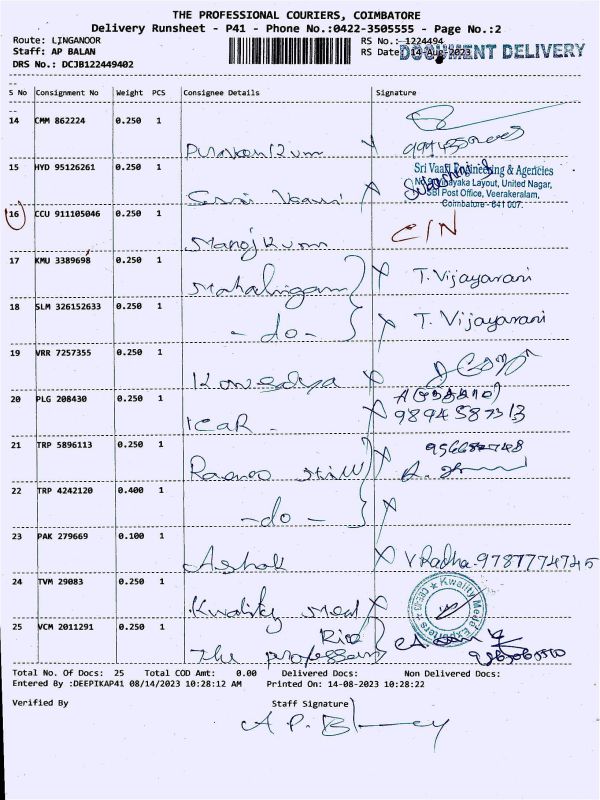 THE PROFESSIONAL COURIERS, COIMBATORE
Delivery Runsheet - P41 - Phone No.:0422-3505555 - Page No.:2
Route: LINGANOOR RS No.: 1224494
Staff: AP BALAN RS Date: 14-Aug-2023 DOCUMENT DELIVERY
DRS No.: DCJB122449402
S No Consignment No Weight PCS Consignee Details Signature
14 CMM 862224 0.250 1
15 HYD 95126261 0.250 1
Sri Vaari Engineering & Agencies
Vinayaka Layout, United Nagar,
SBI Post Office, Veerakeralam,
Coimbatore - 641 007.
16 CCU 911105046 0.250 1
Manoj Kum C/N
17 KMU 3389698 0.250 1
Mahalingam T. Vijayarani
18 SLM 326152633 0.250 1
- do - T. Vijayarani
19 VRR 7257355 0.250 1
20 PLG 208430 0.250 1
ICAR 9894587313
21 TRP 5896113 0.250 1
22 TRP 4242120 0.400 1
- do -
23 PAK 279669 0.100 1
Ashok V Radha - 9787774745
24 TVM 29083 0.250 1
Kwality Meal Kwality Meal Exporters
25 VCM 2011291 0.250 1
The
Total No. Of Docs: 25 Total COD Amt: 0.00 Delivered Docs: Non Delivered Docs:
Entered By :DEEPIKAP41 08/14/2023 10:28:12 AM Printed On: 14-08-2023 10:28:22
Verified By Staff Signature